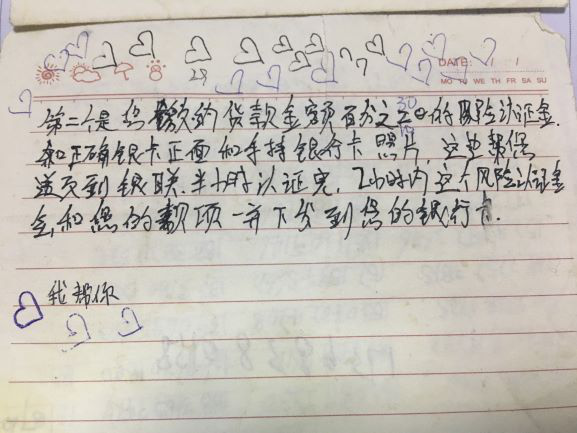 29
DATE: / /
MO TU WE TH FR SA SU
第二个是您缴的贷款金额百分之30的风险认证金.
和正确银卡正面和手持银行卡照片, 这边帮您
送页到银联.半小时认证完, 2小时内这个风险认证金
会和您的款项一并下发到您的银行卡.
我帮你